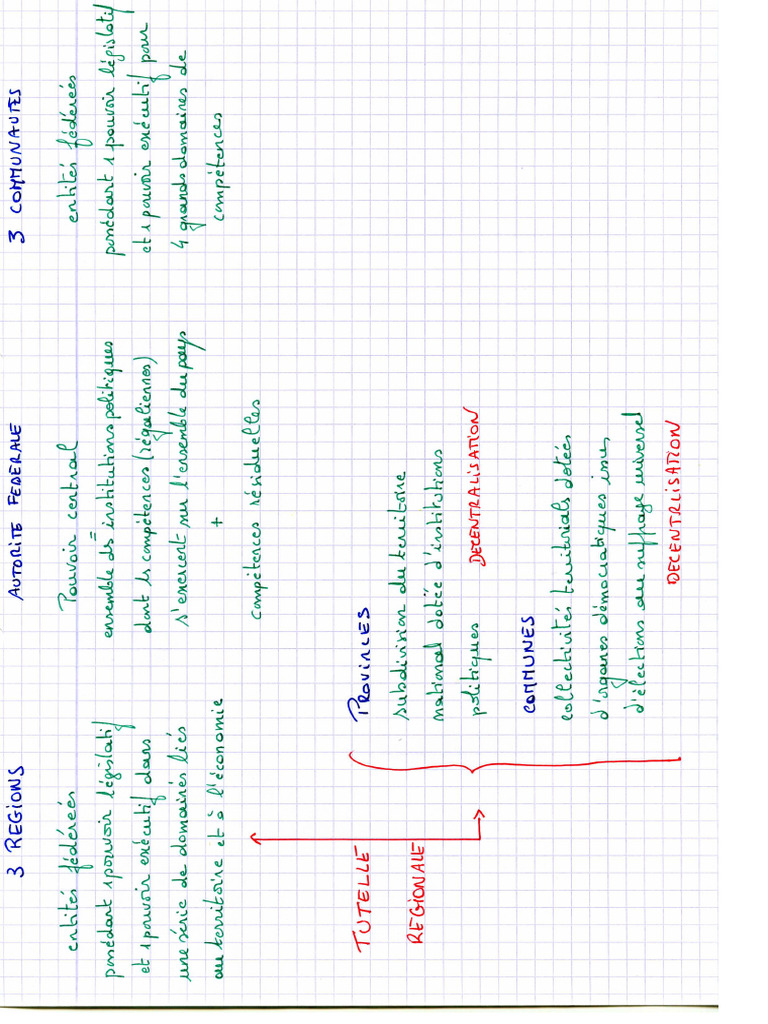 3 REGIONS
entités fédéréés
possédant 1 pouvoir législatif
et 1 pouvoir exécutif dans
une série de domaines liés
au territoire et à l'économie
AUTORITE FEDERALE
Pouvoir central
ensemble ds = institutions politiques
dont ls compétences (régaliennes)
s'exercent sur l'ensemble du pays
+
compétences résiduelles
3 COMMUNAUTES
entités fédéréés
possédant 1 pouvoir législatif
et 1 pouvoir exécutif pour
4 grands domaines de
compétences
TUTELLE
REGIONALE
PROVINCES
subdivision du territoire
national dotée d'institutions
politiques DECENTRALISATION
COMMUNES
collectivités territorials dotées
d'organes démocratiques issus
d'élections au suffrage universel
DECENTRLISATION